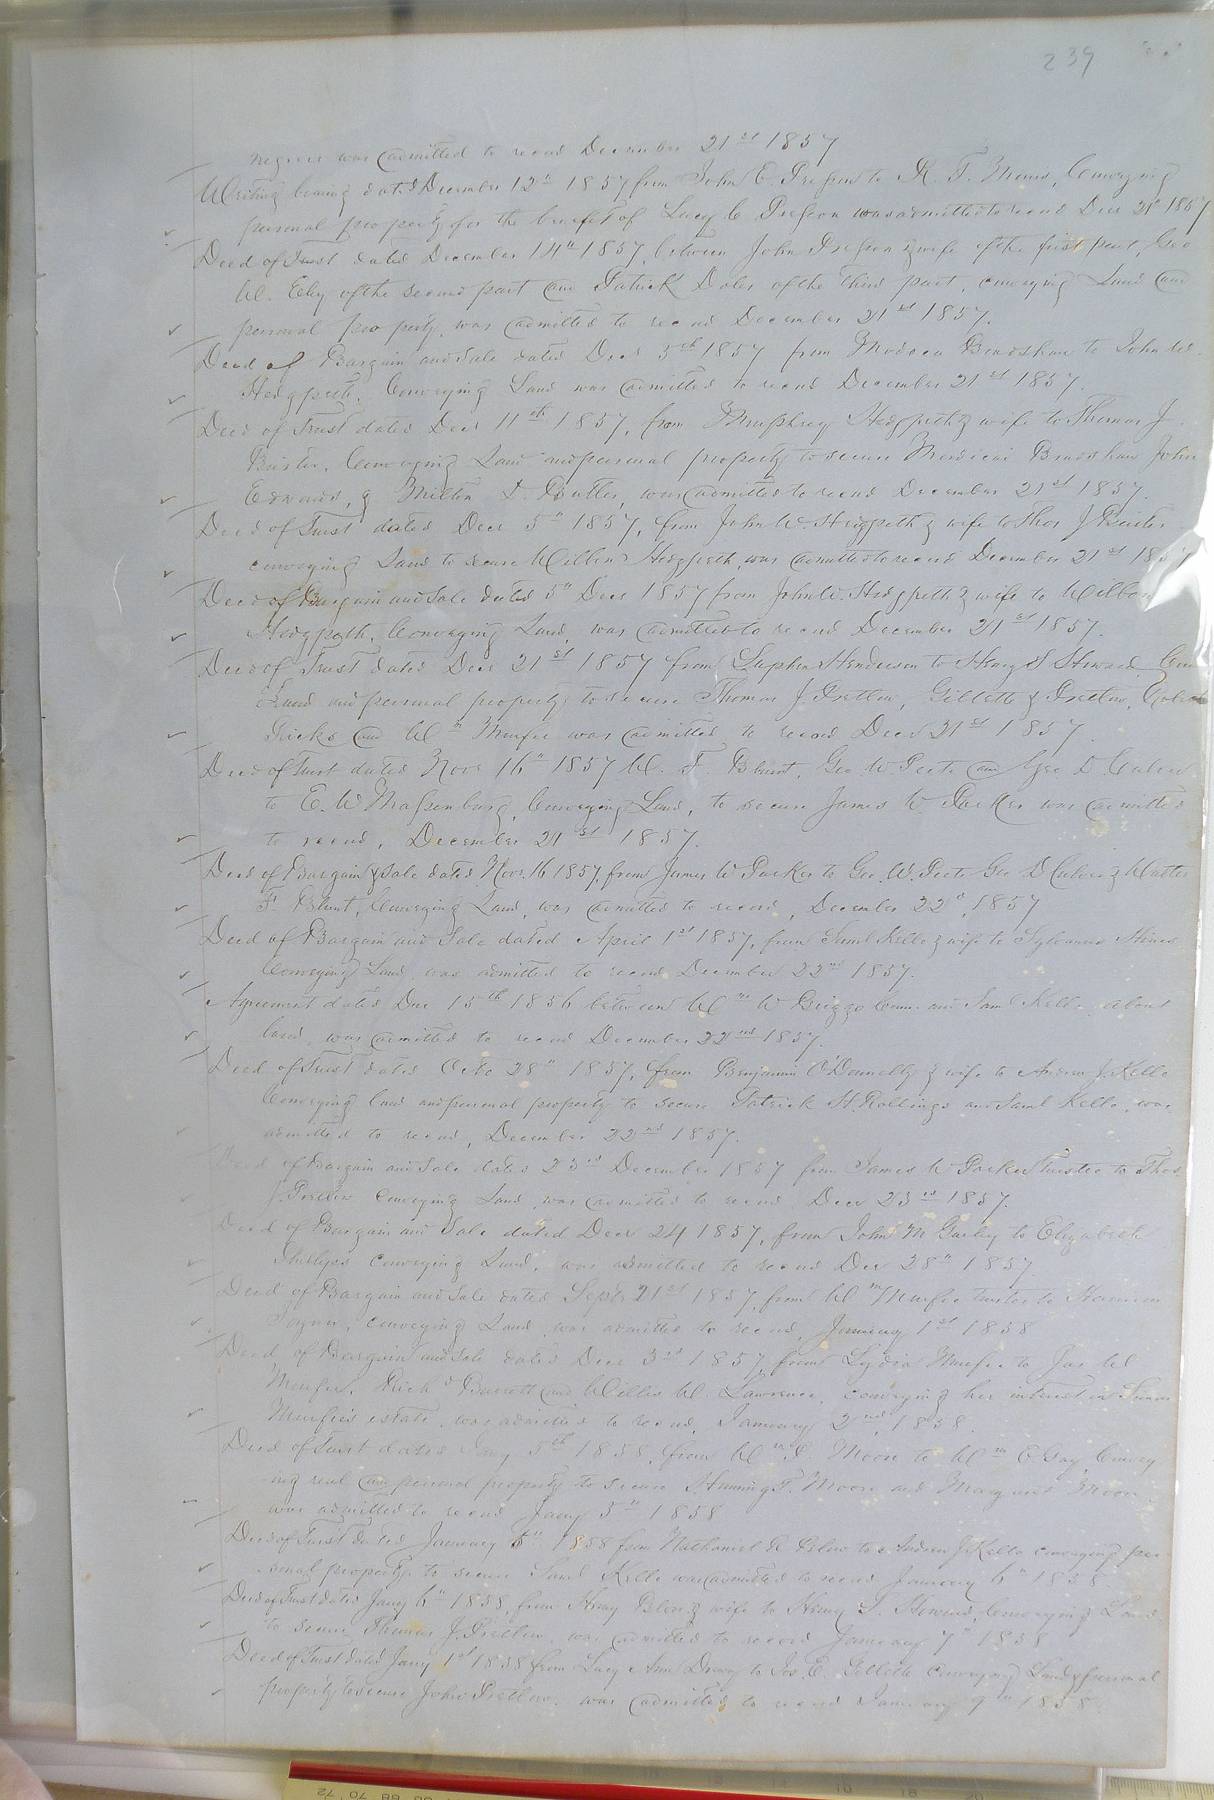 239
negroes was admitted to record December 21st 1857
Writing bearing dated December 12th 1857 from John E. to R. T. Conveying
personal property for the benefit of Lucy C was admitted to record Decr 21st 1857
Deed of Trust dated December 14th 1857, between John & wife of the first part, Geo
W. Eley of the second part and Patrick Doles of the third part, conveying Land and
personal property, was admitted to record December 21st 1857.
Deed of Bargain and Sale dated Decr 5th 1857 from Bradshaw to John
Hedgpeth, Conveying Land was admitted to record December 21st 1857.
Deed of Trust dated Decr 11th 1857, from Humphrey Hedgpeth & wife to Thomas J.
Conveying Land and personal property to secure Bradshaw John
Edwards, & Milton Butler, was admitted to record December 21st 1857.
Deed of Trust dated Decr 5th 1857, from John W. Hedgpeth & wife to Thos J
conveying Land to secure Hedgpeth, was admitted to record December 21st 185
Deed of Bargain and Sale dated 5th Decr 1857 from John W. Hedgpeth & wife to
Hedgpeth, Conveying Land, was admitted to record December 21st 1857.
Deed of Trust dated Decr 21st 1857 from Stephen Henderson to Henry S Howard
Land and personal property to secure Thomas J. Pretlow, Gillette & Pretlow,
Ricks and Wm Murfee was admitted to record Decr 21st 1857.
Deed of Trust dated Novr 16th 1857 W. F. Blunt, Geo W. Peete and Geo D.
to E. W Massenburg, Conveying Land, to secure James W. Parker was admitted
to record, December 21st 1857.
Deed of Bargain & Sale dated Novr. 16 1857, from James W Parker to Geo. W. Peete Geo D &
F. Blunt, Conveying Land, was admitted to record, December 22d, 1857
Deed of Bargain and Sale dated April 1st 1857, from Saml Kello & wife to Sylvanus
Conveying Land was admitted to record December 22nd 1857.
Agreement dated Decr 15th 1856 between Wm W Briggs and Saml Kello about
land, was admitted to record December 22nd 1857.
Deed of Trust dated Octo 28th 1857, from Benjamin O'Donnelly & wife to Andrew J. Kello
Conveying land and personal property to secure Patrick H. Rollings and Saml Kello, was
admitted to record, December 22nd 1857.
Deed of Bargain and Sale dated 23rd December 1857 from James W Parker Trustee to Thos
J. Pretlow conveying Land, was admitted to record Decr 23rd 1857.
Deed of Bargain and Sale dated Decr 24 1857, from John M to Elizabeth
Phillips conveying Land, was admitted to record Decr 28th 1857
Deed of Bargain and Sale dated Septr 21st 1857, from Wm Murfee trustee to
Joyner, conveying Land was admitted to record, January 1st 1858
Deed of Bargain and Sale dated Decr 3rd 1857 from Lydia Murfee to Jas W
Murfee, Richd Barrett and Willis W. Lawrence, conveying her interest in
Murfee's estate, was admitted to record, January 2nd, 1858.
Deed of Trust dated Jany 5th 1858, from Wm Moore to Wm E Gay Convey
ing real and personal property to secure Moore and Margaret Moore.
was admitted to record Jany 5th 1858
Deed of Trust dated January 5th 1858 from Nathaniel R to Andrew J Kello conveying per
sonal property, to secure Saml Kello was admitted to record January 6th 1858.
Deed of Trust dated Jany 6th 1858, from Henry & wife to Henry S. Howard, Conveying Land
to secure Thomas J. Pretlow, was admitted to record January 7th 1858
Deed of Trust dated Jany 1st 1858 from Lucy Ann Drewry to Jos. E. Gillette conveying Land & personal
property to secure John Pretlow. was admitted to record January 9th 1858.